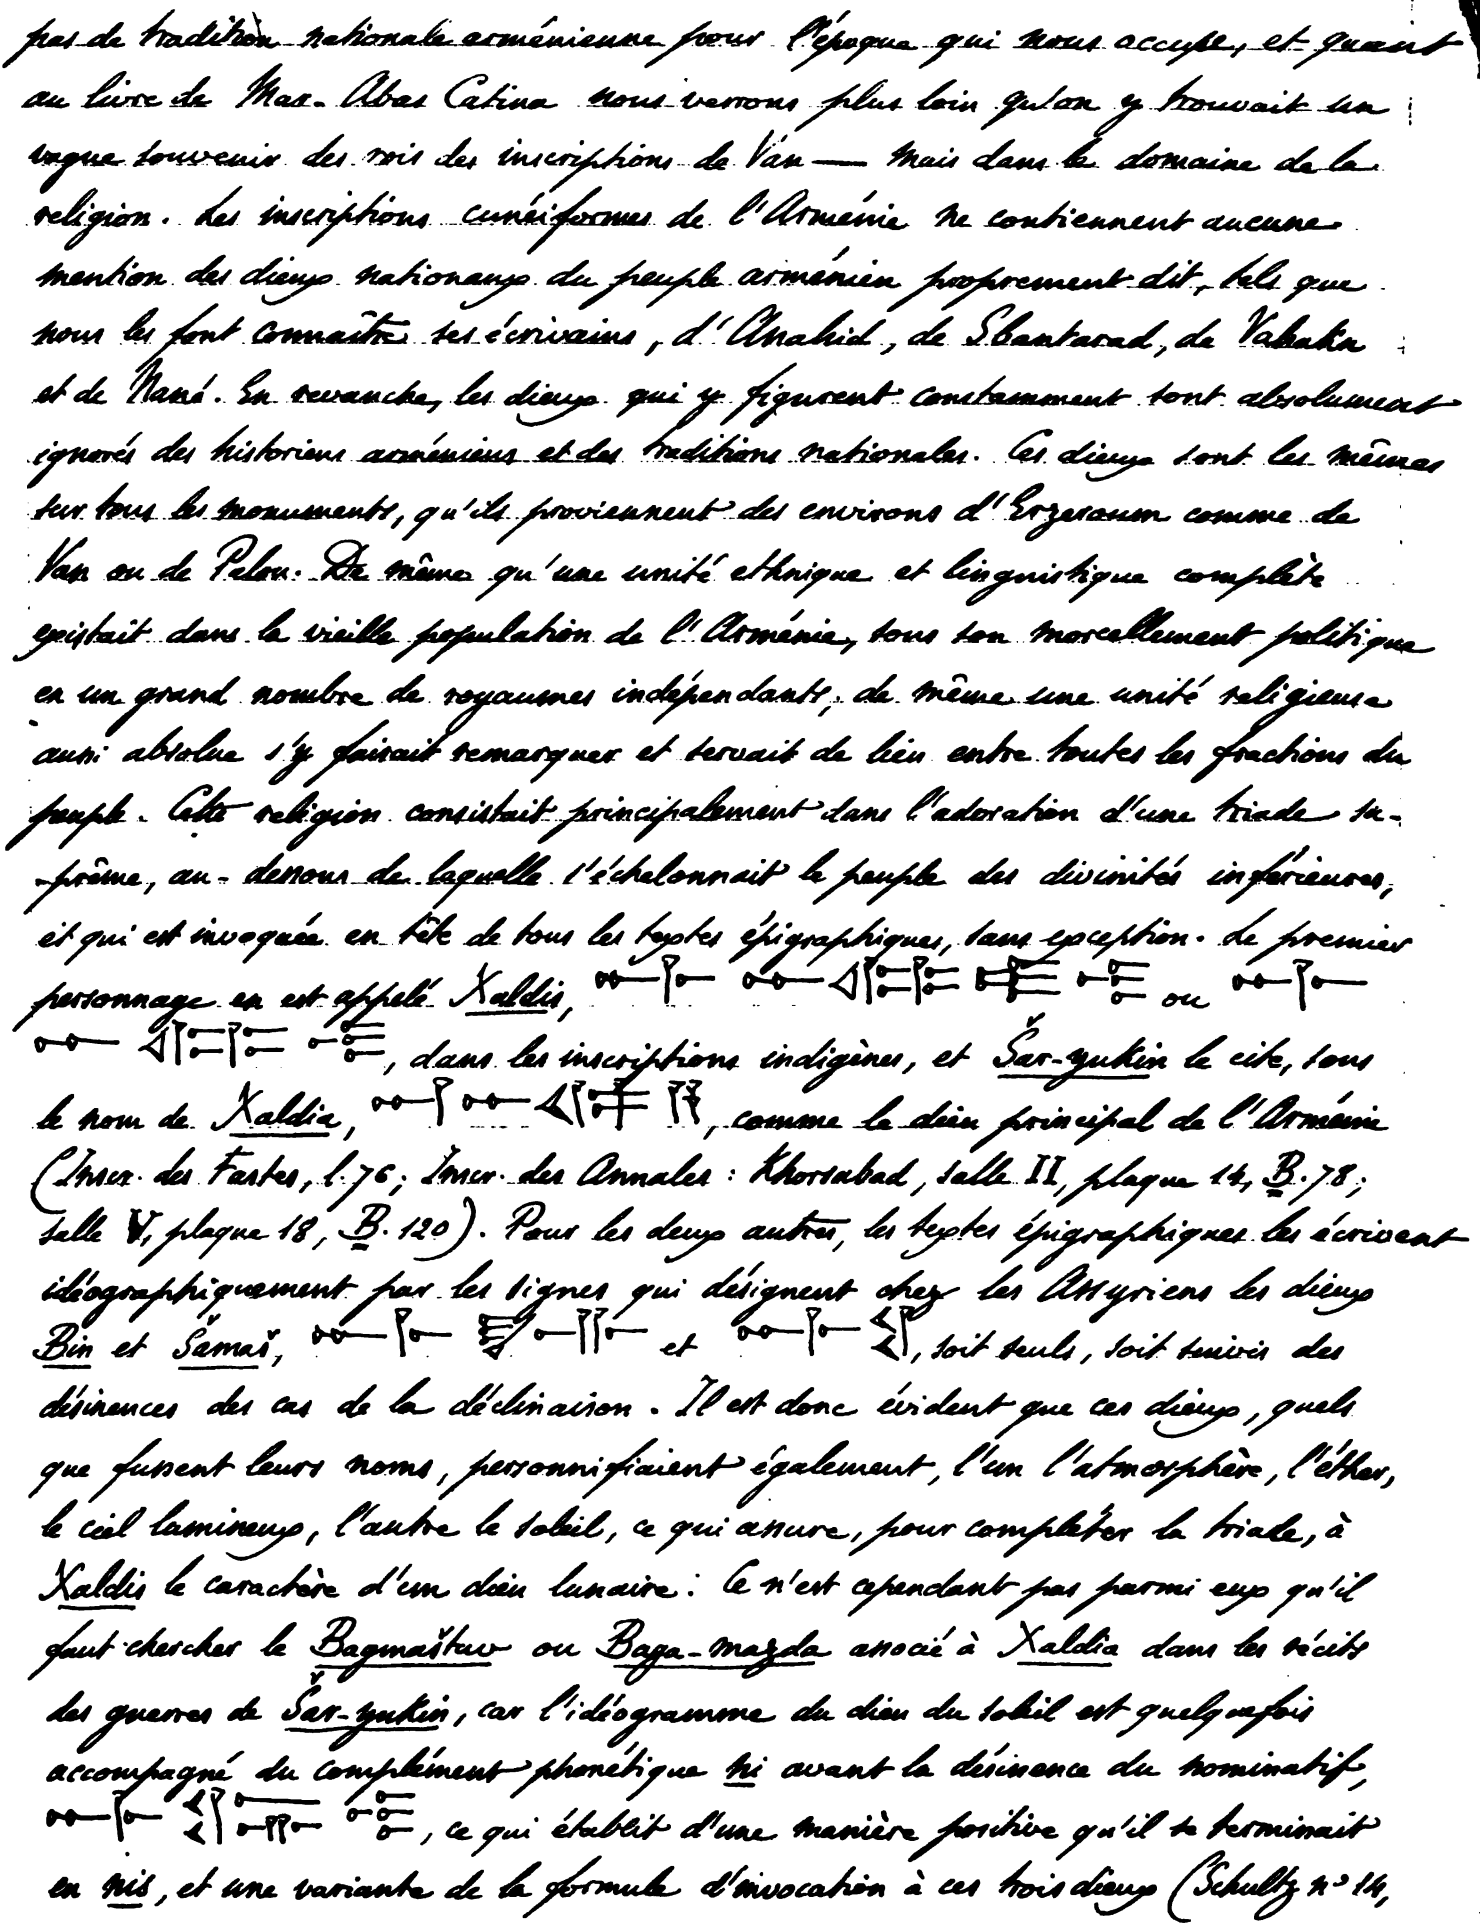 pas de tradition nationale arménienne pour l'époque qui nous occupe, et quant
au livre de Mar-Abas Catina nous verrons plus loin qu'on y trouvait un
vague souvenir des rois des inscriptions de Van — mais dans le domaine de la
religion. Les inscriptions cunéiformes de l'Arménie ne contiennent aucune
mention des dieux nationaux du peuple arménien proprement dit, tels que
nous les font connaître ses écrivains, d'Anahid, de Sbantarad, de Vahakn
et de Nané. En revanche, les dieux qui y figurent constamment sont absolument
ignorés des historiens arméniens et des traditions nationales. Ces dieux sont les mêmes
sur tous les monuments, qu'ils proviennent des environs d'Erzeroum comme de
Van ou de Palou. De même qu'une unité ethnique et linguistique complète
existait dans la vieille population de l'Arménie, sous son morcellement politique
en un grand nombre de royaumes indépendants, de même une unité religieuse
aussi absolue s'y faisait remarquer et servait de lien entre toutes les fractions du
peuple. Cette religion consistait principalement dans l'adoration d'une triade su-
-prême, au-dessous de laquelle s'échelonnait le peuple des divinités inférieures,
et qui est invoquée en tête de tous les textes épigraphiques, sans exception. Le premier
personnage en est appelé Xaldis, ou
, dans les inscriptions indigènes, et Šar-yukin le cite, sous
le nom de Xaldia, , comme le dieu principal de l'Arménie
(Inscr. des Fastes, l. 76; Inscr. des Annales: Khorsabad, salle II, plaque 14, B. 78;
salle V, plaque 18, B. 120). Pour les deux autres, les textes épigraphiques les écrivent
idéographiquement par les signes qui désignent chez les Assyriens les dieux
Bin et Šamaš, et , soit seuls, soit suivis des
désinences des cas de la déclinaison. Il est donc évident que ces dieux, quels
que fussent leurs noms, personnifiaient également, l'un l'atmosphère, l'éther,
le ciel lumineux, l'autre le soleil, ce qui assure, pour compléter la triade, à
Xaldis le caractère d'un dieu lunaire. Ce n'est cependant pas parmi eux qu'il
faut chercher le Bagmaštuv ou Baga-mazda associé à Xaldia dans les récits
des guerres de Šar-yukin, car l'idéogramme du dieu du soleil est quelquefois
accompagné du complément phonétique ni avant la désinence du nominatif,
, ce qui établit d'une manière positive qu'il se terminait
en nis, et une variante de la formule d'invocation à ces trois dieux (Schultz n° 14,